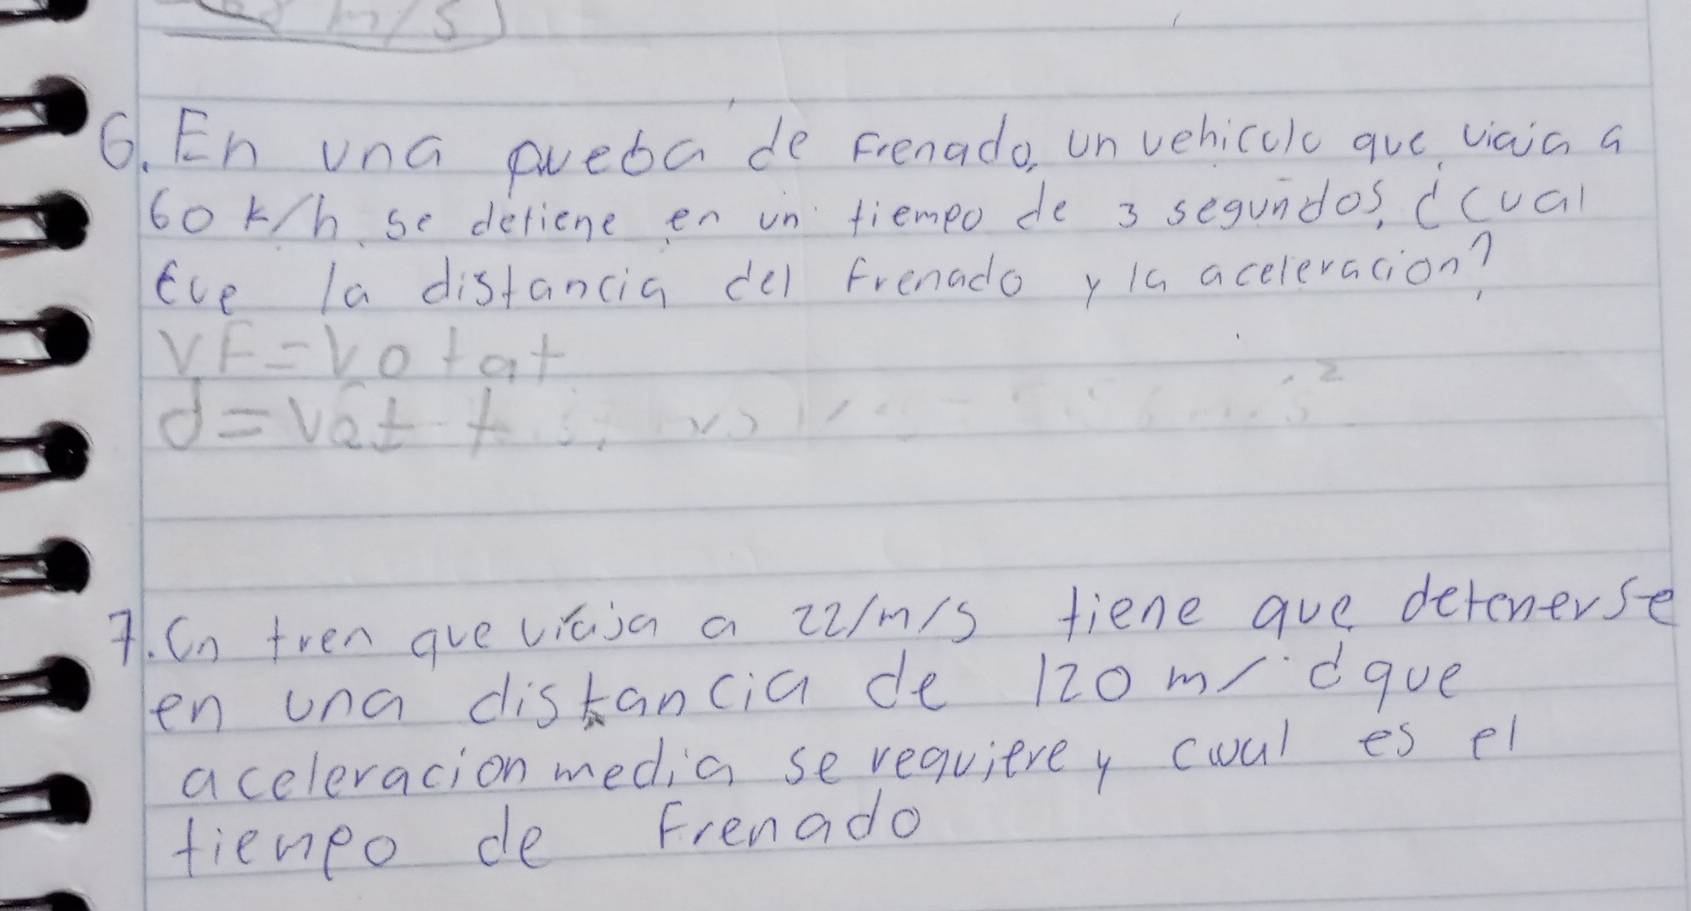 m/s
6. En una pueba de Frenado, un vehiculo que viaja a
60 k/h se detiene en un tiempo de 3 segundos, ¿cual
fue la distancia del Frenado y la aceleracion?
VF=Vo+at
d=Vot +
7. Un tren que viaja a 22/m/s tiene que detenerse
en una distancia de 120 m/ ¿que
aceleracion media se requiere y cual es el
tiempo de Frenado